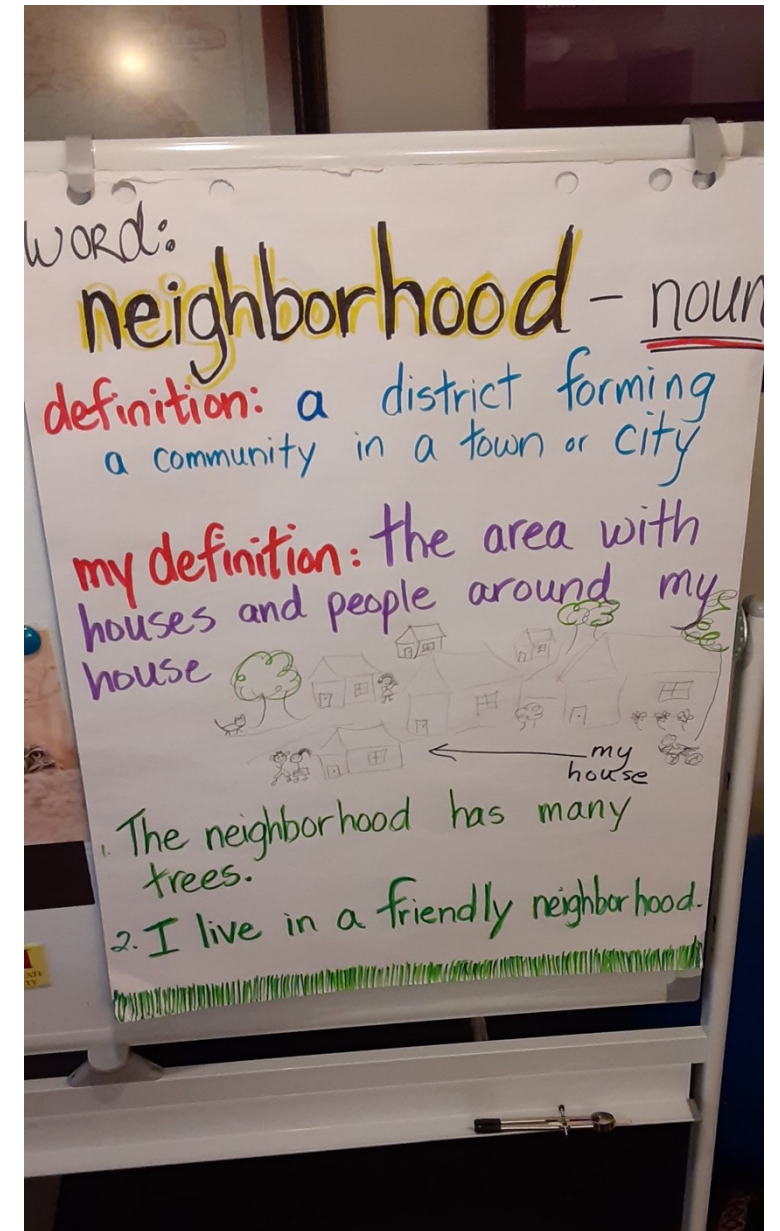 word:
neighborhood - noun
definition: a district forming
a community in a town or city
my definition: the area with
houses and people around my
house
my
house
1. The neighborhood has many
trees.
2. I live in a friendly neighborhood.